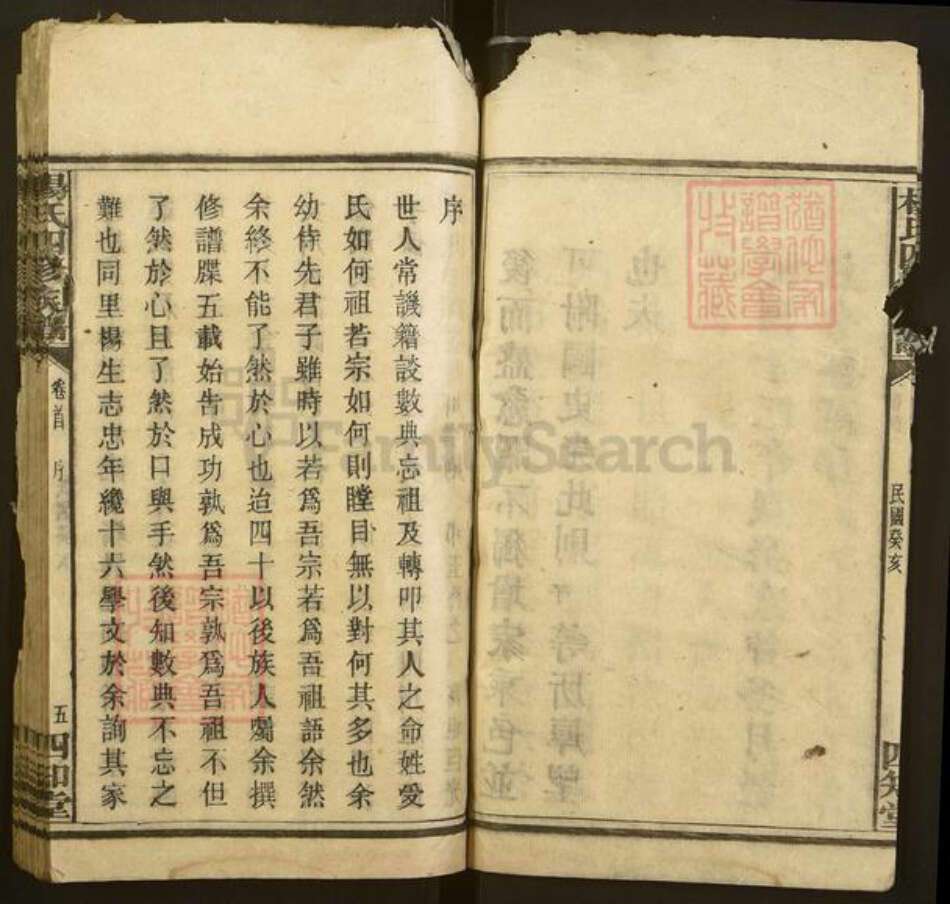 民國癸亥
四知堂
序
世人常譏籍談數典忘祖及轉叩其人之命姓爰
氏如何祖若宗如何則瞠目無以對何其多也余
幼侍先君子雖時以若爲吾宗若爲吾祖語余然
余終不能了然於心也迨四十以後族人屬余撰
修譜牒五載始告成功孰爲吾宗孰爲吾祖不但
了然於心且了然於口與手然後知數典不忘之
難也同里楊生志忠年纔十六學文於余詢其家
楊氏四修族譜
卷首
序
五
四知堂
FamilySearch